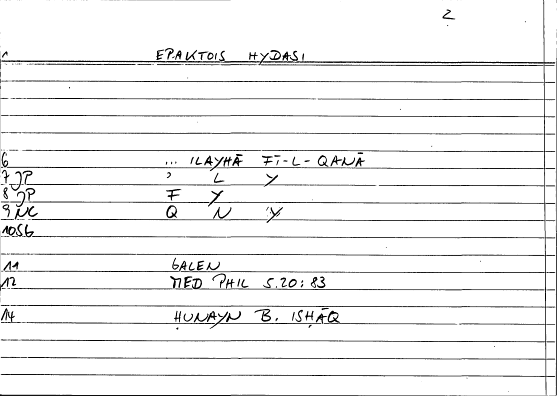 2
1 EPAKTOIS HYDASI
6 ... ILAYHĀ FĪ-L-QANĀ
7 JP ʾ L Y
8 JP F Y
9 NC Q N Y
10 SG
11 GALEN
12 MED PHIL 5.20:83
14 ḤUNAYN B. ISḤĀQ